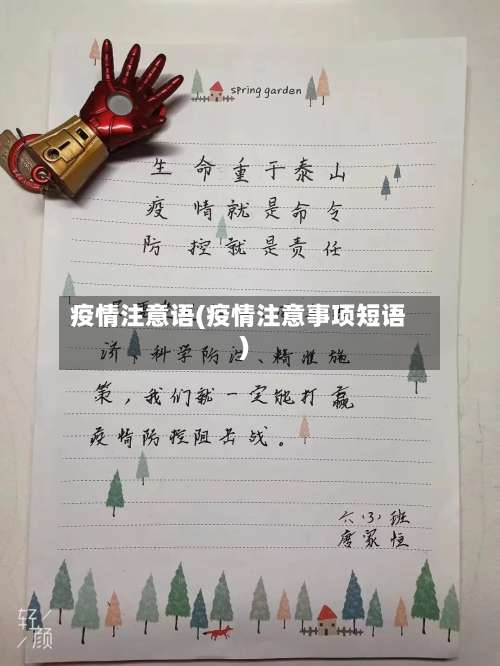 spring garden
生命重于泰山
疫情就是命令
防控就是责任
疫情注意语(疫情注意事项短语
)
济、科学防治、精准施
策，我们就一定能打赢
疫情防控阻击战。
六(3)班
唐家恒
轻颜